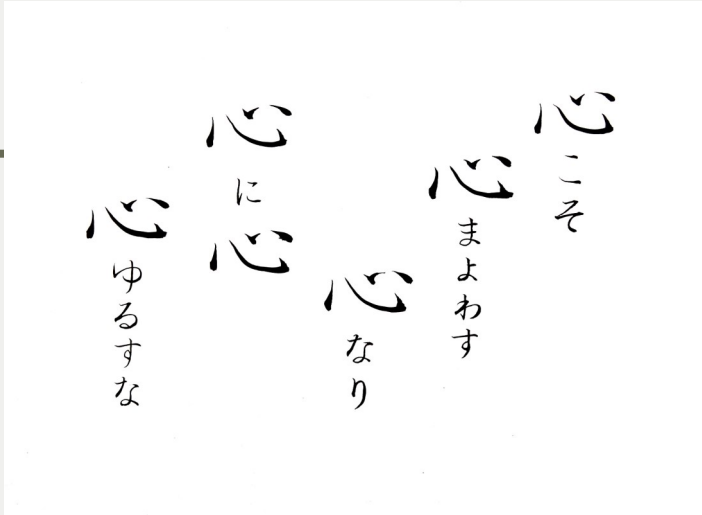 心こそ
心まよわす
心なり
心に心
心ゆるすな